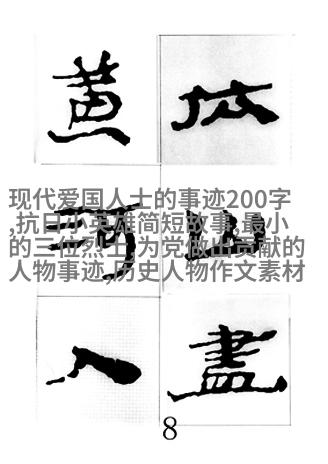 依山盡
黄河入
现代爱国人士的事迹200字
,抗日小英雄简短故事,最小
的三位烈士,为党做出贡献的
人物事迹,历史人物作文素材
8